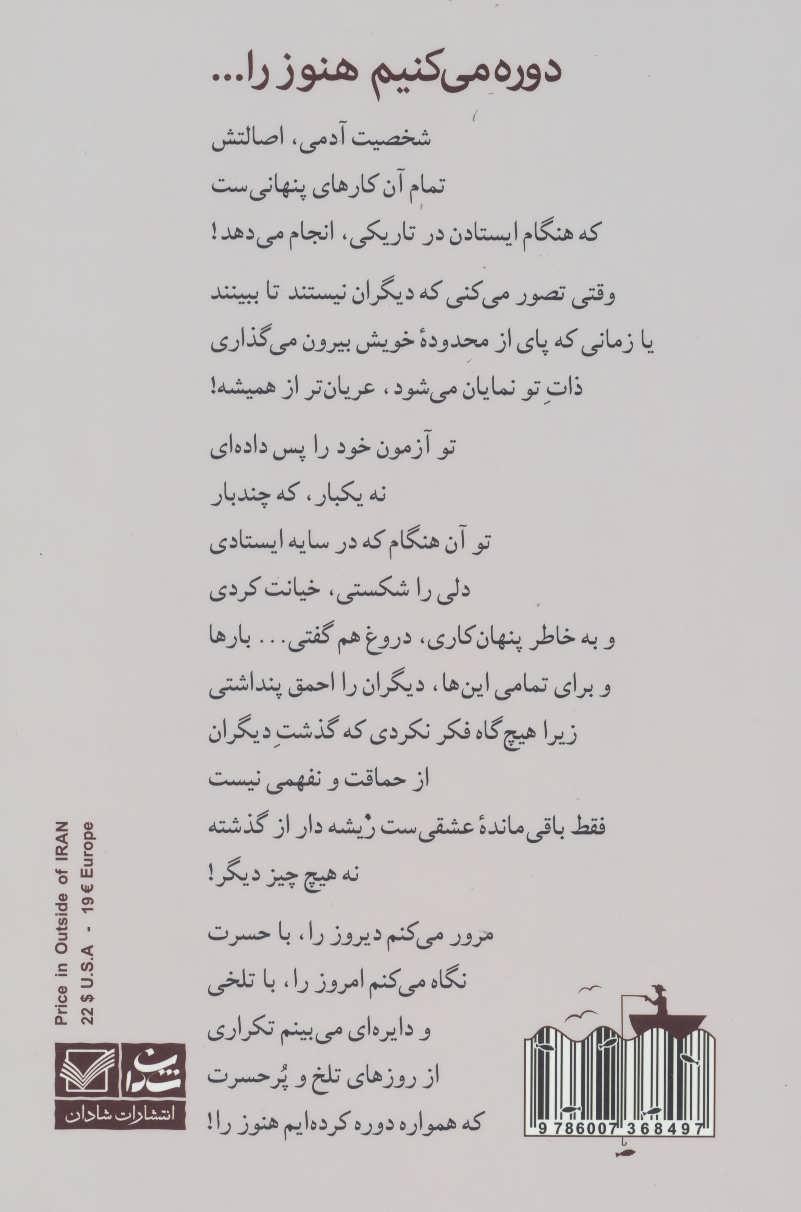 دوره می‌کنیم هنوز را...
شخصیت آدمی، اصالتش
تمام آن کارهای پنهانی‌ست
که هنگام ایستادن در تاریکی، انجام می‌دهد!
وقتی تصور می‌کنی که دیگران نیستند تا ببینند
یا زمانی که پای از محدودهٔ خویش بیرون می‌گذاری
ذاتِ تو نمایان می‌شود، عریان‌تر از همیشه!
تو آزمون خود را پس داده‌ای
نه یکبار، که چندبار
تو آن هنگام که در سایه ایستادی
دلی را شکستی، خیانت کردی
و به خاطر پنهان‌کاری، دروغ هم گفتی... بارها
و برای تمامی این‌ها، دیگران را احمق پنداشتی
زیرا هیچ‌گاه فکر نکردی که گذشتِ دیگران
از حماقت و نفهمی نیست
فقط باقی‌ماندهٔ عشقی‌ست ریشه دار از گذشته
نه هیچ چیز دیگر!
مرور می‌کنم دیروز را، با حسرت
نگاه می‌کنم امروز را، با تلخی
و دایره‌ای می‌بینم تکراری
از روزهای تلخ و پُرحسرت
که همواره دوره کرده‌ایم هنوز را!
Price in Outside of IRAN
22 $ U.S.A - 19 € Europe
شادان
انتشارات شادان
9 786007 368497